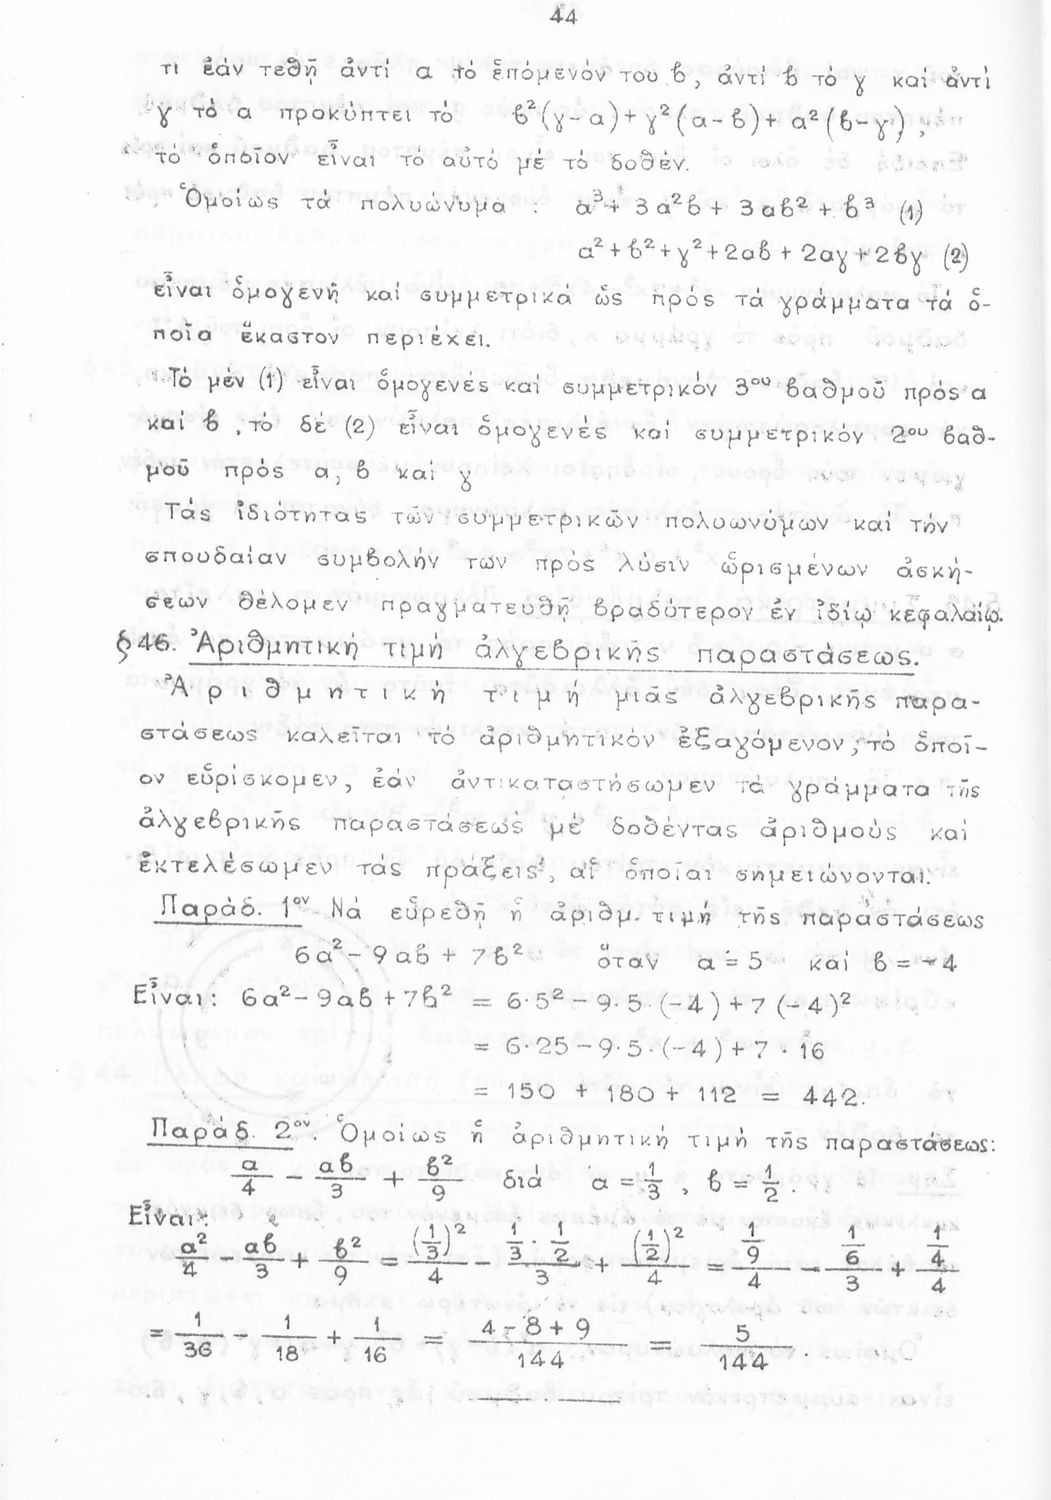 44
τι ἐάν τεθῇ ἀντί α τό ἑπόμενόν του β, ἀντί β τό γ καί ἀντί
γ τό α προκύπτει τό β²(γ-α)+γ²(α-β)+α²(β-γ),
τό ὁποῖον εἶναι τό αὐτό μέ τό δοθέν.
Ὁμοίως τά πολυώνυμα : α³+3α²β+3αβ²+β³ (1)
α²+β²+γ²+2αβ+2αγ+2βγ (2)
εἶναι ὁμογενῆ καί συμμετρικά ὡς πρός τά γράμματα τά ὁ-
ποῖα ἕκαστον περιέχει.
Τό μέν (1) εἶναι ὁμογενές καί συμμετρικόν 3ου βαθμοῦ πρός α
καί β, τό δέ (2) εἶναι ὁμογενές καί συμμετρικόν 2ου βαθ-
μοῦ πρός α, β καί γ
Τάς ἰδιότητας τῶν συμμετρικῶν πολυωνύμων καί τήν
σπουδαίαν συμβολήν των πρός λύσιν ὡρισμένων ἀσκή-
σεων θέλομεν πραγματευθῆ βραδύτερον ἐν ἰδίῳ κεφαλαίῳ.
§ 46. Ἀριθμητική τιμή ἀλγεβρικῆς παραστάσεως.
Ἀριθμητική τιμή μιᾶς ἀλγεβρικῆς παρα-
στάσεως καλεῖται τό ἀριθμητικόν ἐξαγόμενον, τό ὁποῖ-
ον εὑρίσκομεν, ἐάν ἀντικαταστήσωμεν τά γράμματα τῆς
ἀλγεβρικῆς παραστάσεως μέ δοθέντας ἀριθμούς καί
ἐκτελέσωμεν τάς πράξεις, αἱ ὁποῖαι σημειώνονται.
Παράδ. 1ον Νά εὑρεθῇ ἡ ἀριθμ. τιμή τῆς παραστάσεως
6α²-9αβ+7β² ὅταν α=5 καί β=-4
Εἶναι: 6α²-9αβ+7β² = 6·5²-9·5·(-4)+7(-4)²
= 6·25-9·5·(-4)+7·16
= 150 + 180 + 112 = 442.
Παράδ. 2ον. Ὁμοίως ἡ ἀριθμητική τιμή τῆς παραστάσεως:
α/4 - αβ/3 + β²/9 διά α=1/3, β=1/2.
Εἶναι:
α²/4 - αβ/3 + β²/9 = (1/3)²/4 - 1/3·1/2/3 + (1/2)²/4 = 1/9/4 - 1/6/3 + 1/4/4
= 1/36 - 1/18 + 1/16 = 4-8+9/144 = 5/144.